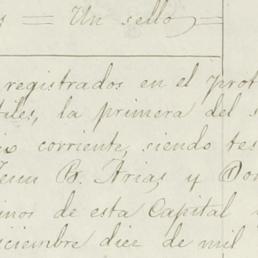 s = Un sello =
registrados en el prot
tiles, la primera del s
io corriente, siendo tes
Juan B. Arias y Don
inos de esta Capital
iciembre diez de mil